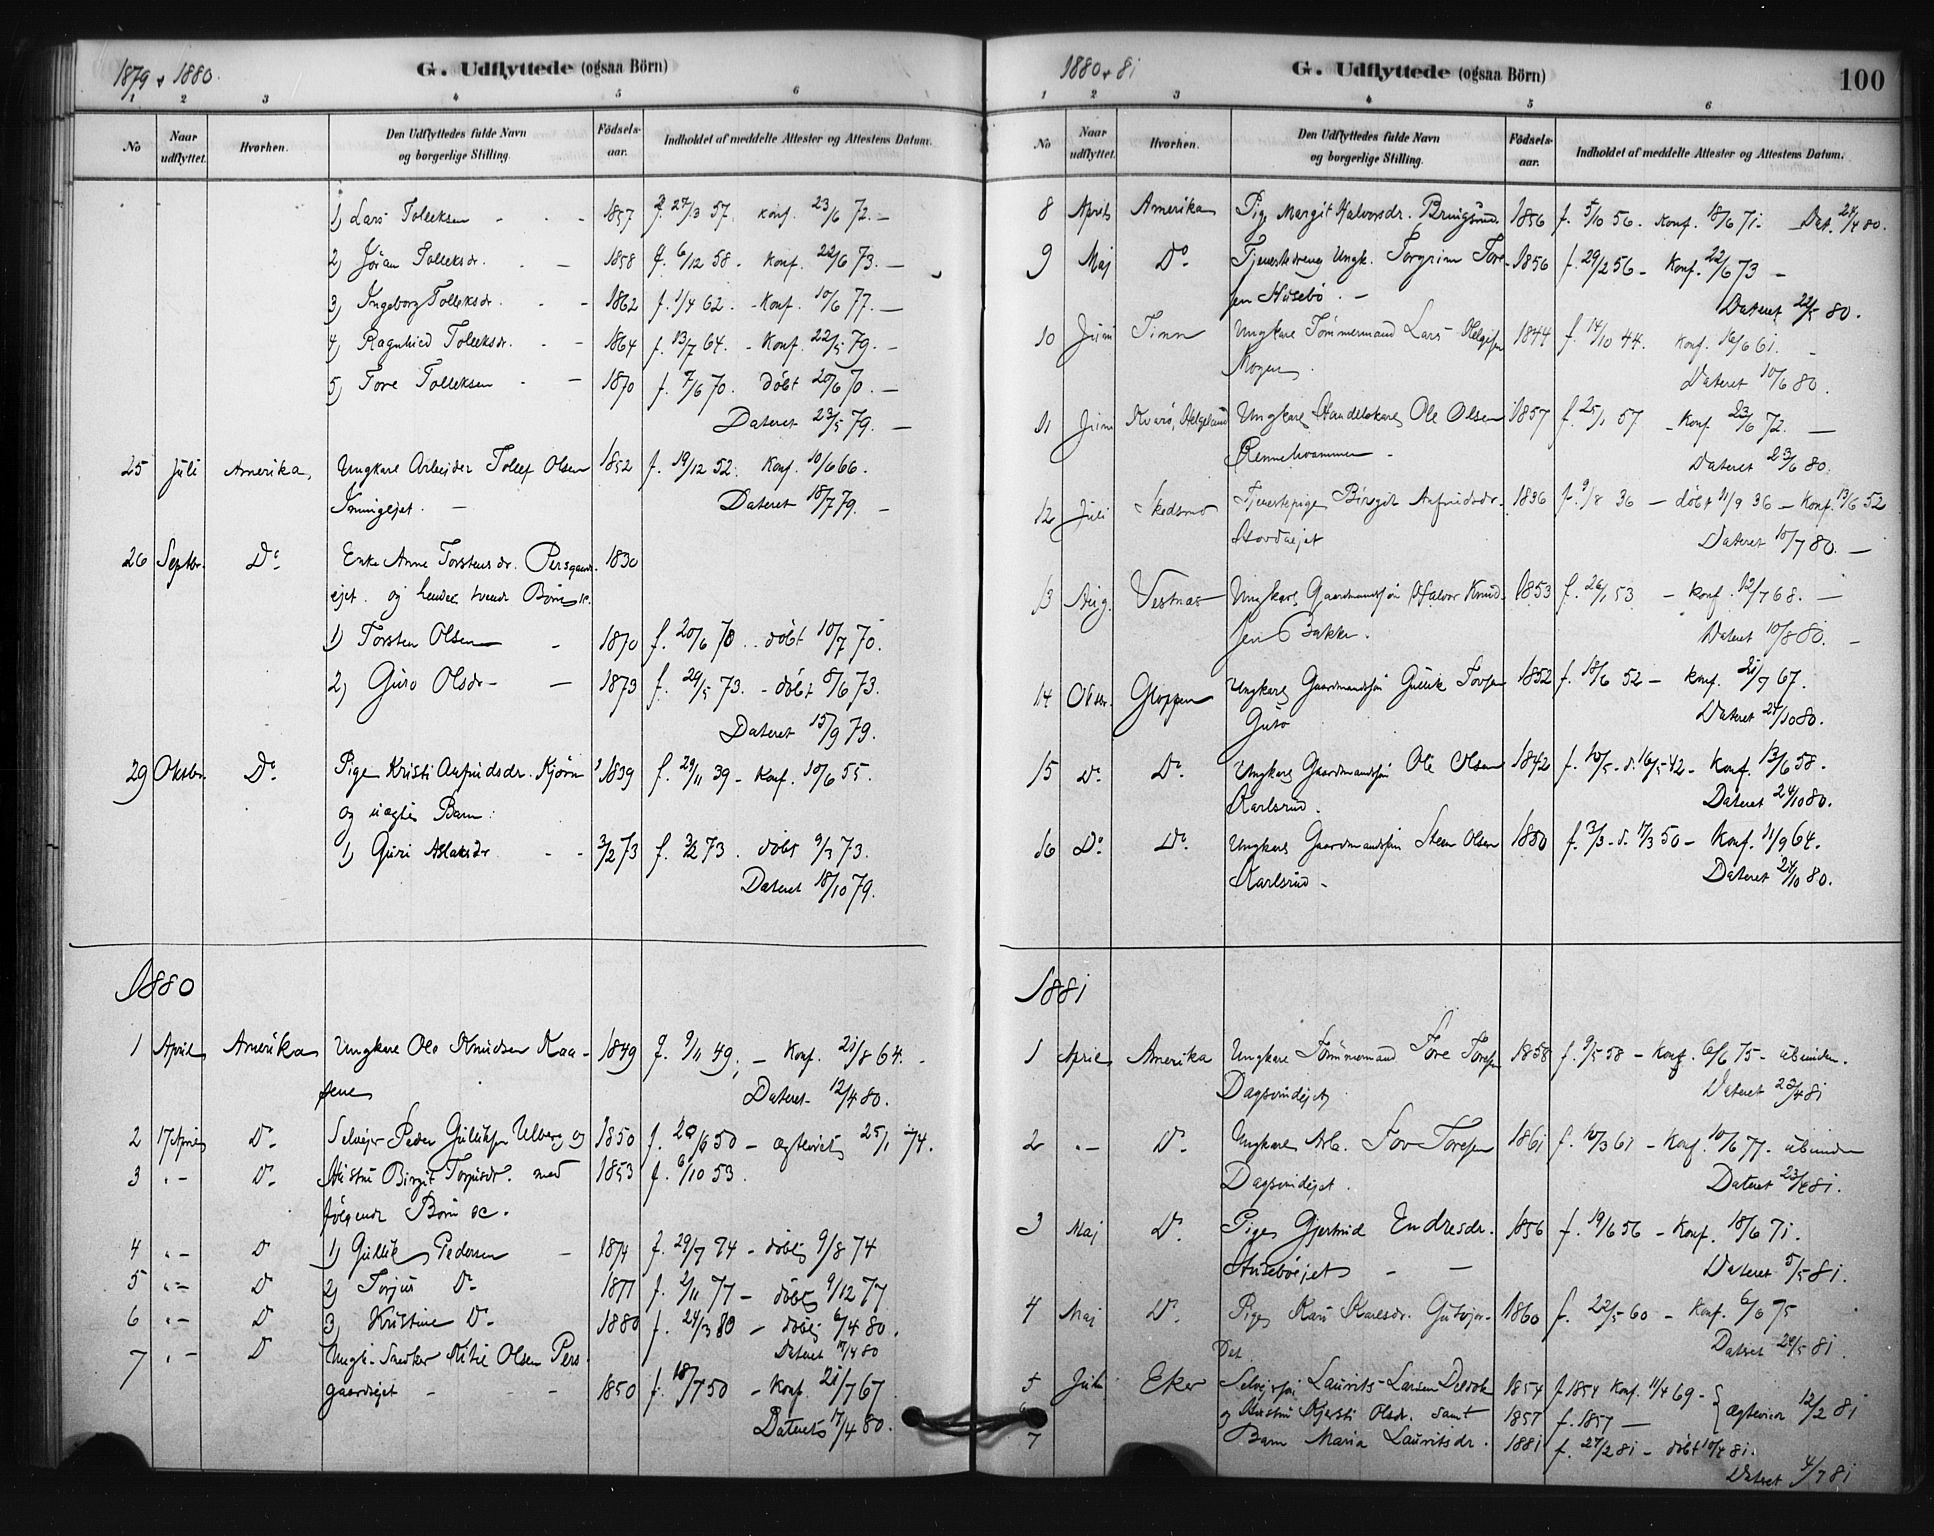 1879 & 1880.
G. Udflyttede (ogsaa Börn)
1 2 3 4 5 6
No
Naar udflyttet.
Hvorhen.
Den Udflyttedes fulde Navn og borgerlige Stilling.
Födsels-aar.
Indholdet af meddelte Attester og Attestens Datum.
1) Lars Tolleksen - - - 1857 f. 27/3 57. konf. 23/6 72. -
2) Jöran Tolleksdr. - - 1858 f. 6/12 58 - Konf. 22/6 73. -
3) Ingeborg Tolleksdr. - - 1862 f. 1/4 62. - Konf. 10/6 77. -
4) Ragnhild Tolleksdr. - - 1864 f. 13/7 64. - Konf. 22/5 79. -
5) Tore Tolleksen - - 1870 f. 7/6 70. döbt 26/6 70. -
Dateret 23/5 79. -
25 Juli Amerika, Ungkarl Arbeider Tollef Olsen 1852 f. 19/12 52. Konf. 10/6 66.
Dateret 18/7 79. -
26 Septbr. Do. Enke Anne Torstensdr. Persgaards- 1830
ejet. og hendes tvende Börn sc.
1) Torsten Olsen - 1870 f. 20/6 70 .. döbt 10/7 70.
2) Guro Olsdr - - 1873 f. 29/5 73. - döbt 8/6 73.
Dateret 15/9 79.
29 Oktbr. Do. Pige Kristi Anfindsdr. Kjörn 1839 f. 29/11 39 - Konf. 10/6 55.
og uægte Barn:
1) Guri Aslaksdr - - 3/2 73 f. 3/2 73. döbt 9/3 73.
Dateret 18/10 79.
1880
1 April Amerika Ungkarl Ole Knudsen Kaa- 1849 f. 9/11 49, - Konf. 21/8 64. -
sene Dateret 12/4 80.
2 17 April Do. Selvejer Peder Gulliksen Ulberg og 1850 f. 20/6 50 - ægteviet 25/1 74.
3 " - Do. Hustru Birgit Torjusdr. med 1853 f. 6/10 53.
fölgende Börn sc.
4 " - D 1) Gullik Pedersen - 1874 f. 29/7 74 - döbt 9/8 74
5 " - D 2) Torjus Do. 1877 f. 2/11 77 - döbt 9/12 77
6 " - D 3) Kristine Do. 1880 f. 24/3 80 - döbt 6/4 80.
Dateret 17/4 80
7 " - D Ungk. Snedker Kittil Olsen Pers-
gaardsejet - - - 1850 f. 18/7 50 - Konf. 21/7 67
Dateret 17/4 80.
1880 & 81
G. Udflyttede (ogsaa Börn)
100
1 2 3 4 5 6
No
Naar udflyttet.
Hvorhen.
Den Udflyttedes fulde Navn og borgerlige Stilling.
Födsels-aar.
Indholdet af meddelte Attester og Attestens Datum.
8 April Amerika Pig. Margit Halvorsdr. 1856 f. 5/10 56. Konf. 18/6 71. Dat. 24/4 80.
9 Maj Do. Tjenestedreng Ungk. Torgrim Tore- 1856 f. 29/2 56 - Konf. 22/6 73 -
sen Husebö. - Dateret 22/5 80.
10 Juni Tinn Ungkarl Tömmermand Lars Helgesen 1844 f. 14/10 44. Konf. 16/6 61. -
Mogen. Dateret 10/6 80.
11 Juni Helgeland Ungkarl Handelskarl Ole Olsen 1857 f. 25/1 57 - Konf 23/6 72. -
Dateret 23/6 80.
12 Juli Skedsmo Tjenestepige Birgit Anfindsdr. 1836 f. 9/8 36 - döbt 11/9 36 - Konf. 13/6 52
Dateret 10/7 80. -
13 Aug. Vestnæs Ungkarl Gaardmandssön Halvor Knud- 1853 f. 26/1 53 - Konf. 12/7 68. -
sen Bakke. Dateret 10/8 80. -
14 Oktbr. Gloppen Ungkarl Gaardmandssön Gullik Tovsen 1852 f. 18/6 52 - Konf. 21/7 67.
Dateret 24/10 80.
15 Do. Do. Ungkarl Gaardmandssön Ole Olsen 1842 f. 10/5 - d. 16/5 42 - Konf. 13/6 58.
Karlsrud. Dateret 24/10 80.
16 Do. Do. Ungkarl Gaardmandssön Steen Olsen 1850 f. 3/3 - d. 17/3 50 - Konf. 11/9 64.
Karlsrud - Dateret 24/10 80.
1881
1 April Amerika Ungkarl Tömmermand Tore Toresen 1858 f. 9/5 58 - Konf. 6/6 75 - ubunden.
Dagsvindejet Dateret 23/4 81
2 " - Do. Ungkarl Arb. Tov Toresen 1861 f. 10/3 61 - Konf. 10/6 77 - ubunden
Dagsvindejet. Dateret 23/4 81.
3 Maj Do. Pige Gjertrud Endresdr. 1856 f. 19/6 56 - Konf. 18/6 71.
Huseböejet - - Dateret 5/5 81.
4 Maj Do. Pige Kari Karlsdr. 1860 f. 22/5 60 - Konf. 6/6 75
Dateret 29/5 81.
5 Juli Eker Selvejer Laurits Larsen 1854 f 1854 Konf. 11/4 69 - } ægteviede 12/2 81
6 og Hustru Kjersti Olsdr. samt 1857 f. 1857 -
7 Barn Maria Lauritsdr. 1881 f. 27/2 81 - döbt 18/4 81.
Dateret 4/7 81